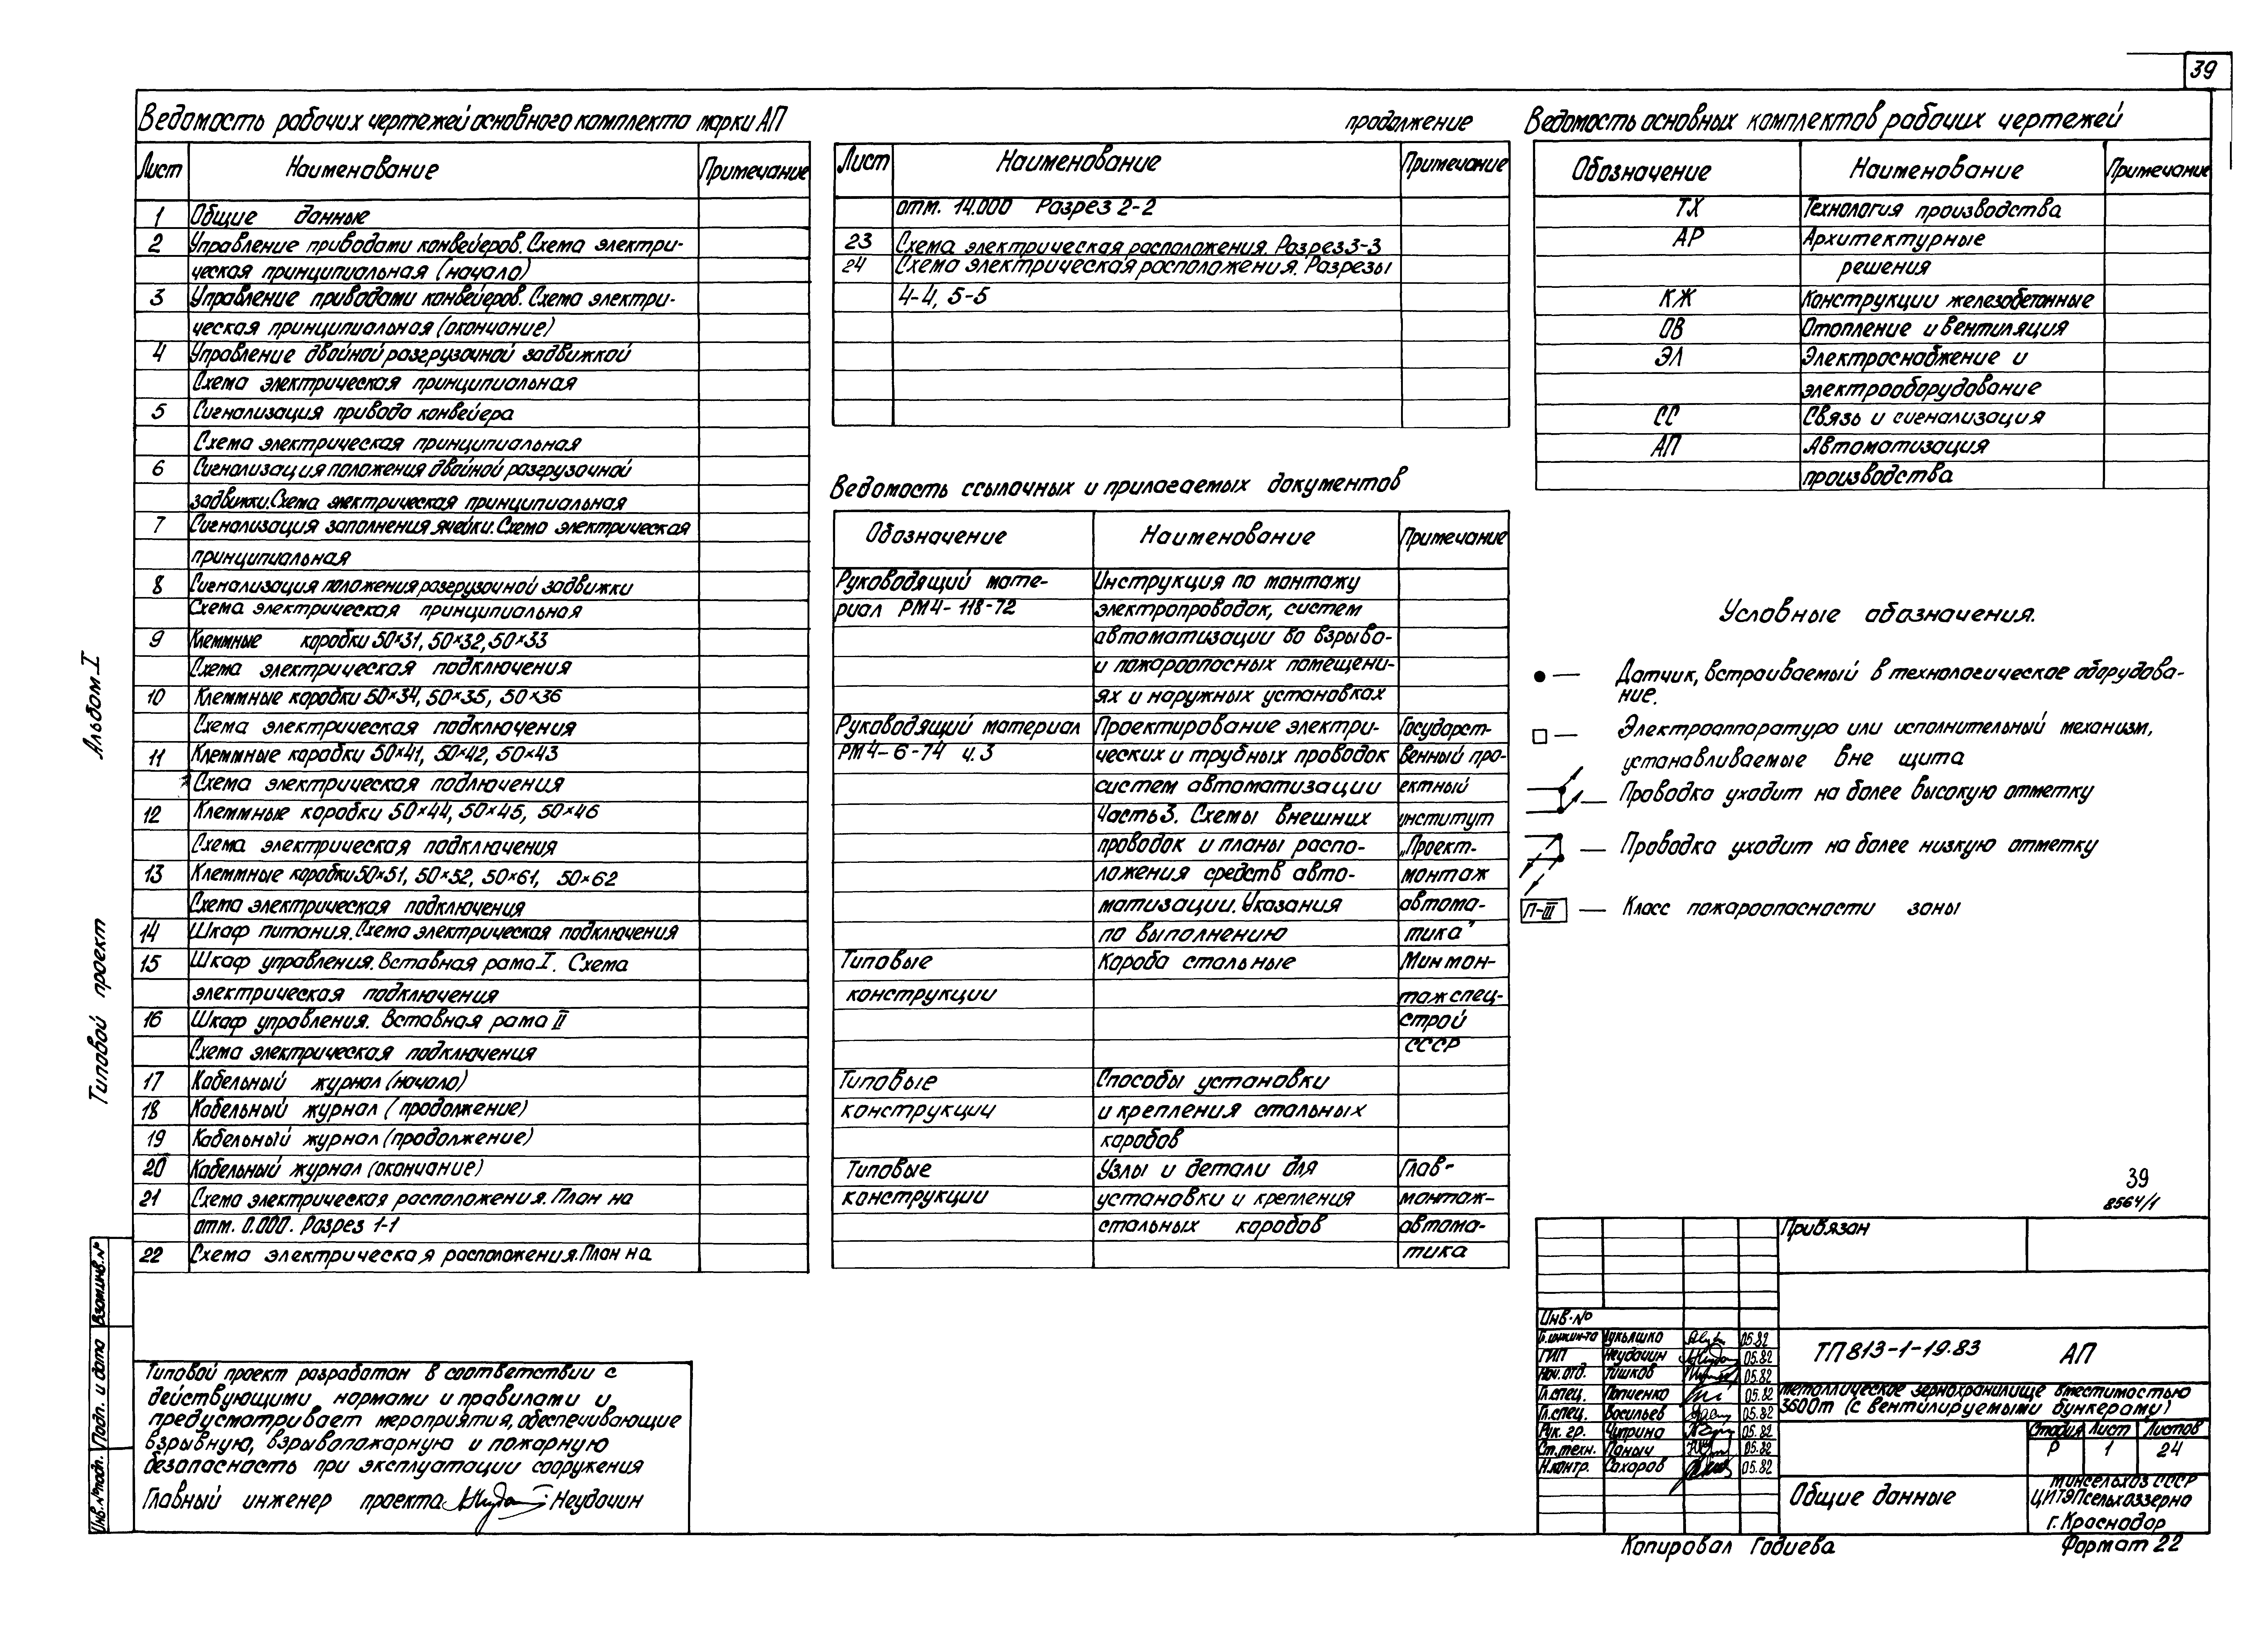 39
Ведомость рабочих чертежей основного комплекта марки АП
Лист Наименование Примечание
1 Общие данные
2 Управление приводами конвейеров. Схема электри-
ческая принципиальная (начало)
3 Управление приводами конвейеров. Схема электри-
ческая принципиальная (окончание)
4 Управление двойной разгрузочной задвижкой
Схема электрическая принципиальная
5 Сигнализация привода конвейера
Схема электрическая принципиальная
6 Сигнализация положения двойной разгрузочной
задвижки. Схема электрическая принципиальная
7 Сигнализация заполнения ячейки. Схема электрическая
принципиальная
8 Сигнализация положения разгрузочной задвижки
Схема электрическая принципиальная
9 Клеммные коробки 50×31, 50×32, 50×33
Схема электрическая подключения
10 Клеммные коробки 50×34, 50×35, 50×36
Схема электрическая подключения
11 Клеммные коробки 50×41, 50×42, 50×43
Схема электрическая подлючения
12 Клеммные коробки 50×44, 50×45, 50×46
Схема электрическая подключения
13 Клеммные коробки 50×51, 50×52, 50×61, 50×62
Схема электрическая подключения
14 Шкаф питания. Схема электрическая подключения
15 Шкаф управления. Вставная рама I. Схема
электрическая подключения
16 Шкаф управления. Вставная рама II
Схема электрическая подключения
17 Кабельный журнал (начало)
18 Кабельный журнал (продолжение)
19 Кабельный журнал (продолжение)
20 Кабельный журнал (окончание)
21 Схема электрическая расположения. План на
отм. 0.000. Разрез 1-1
22 Схема электрическая расположения. План на
продолжение
Лист Наименование Примечание
отм. 14.000 Разрез 2-2
23 Схема электрическая расположения. Разрез 3-3
24 Схема электрическая расположения. Разрезы
4-4, 5-5
Ведомость ссылочных и прилагаемых документов
Обозначение Наименование Примечание
Руководящий мате- Инструкция по монтажу
риал РМ4-118-72 электропроводок, систем
автоматизации во взрыво-
и пожароопасных помещени-
ях и наружных установках
Руководящий материал Проектирование электри- Государст-
РМ4-6-74 ч.3 ческих и трубных проводок венный про-
систем автоматизации ектный
Часть 3. Схемы внешних институт
проводок и планы распо- „Проект-
ложения средств авто- монтаж
матизации. Указания автома-
по выполнению тика"
Типовые Короба стальные Минмон-
конструкции тажспец-
строй
СССР
Типовые Способы установки
конструкции и крепления стальных
коробов
Типовые Узлы и детали для Глав-
конструкции установки и крепления монтаж-
стальных коробов автома-
тика
Ведомость основных комплектов рабочих чертежей
Обозначение Наименование Примечание
ТХ Технология производства
АР Архитектурные
решения
КЖ Конструкции железобетонные
ОВ Отопление и вентиляция
ЭЛ Электроснабжение и
электрооборудование
СС Связь и сигнализация
АП Автоматизация
производства
Условные обозначения.
— Датчик, встраиваемый в технологическое оборудова-
ние.
— Электроаппаратура или исполнительный механизм,
устанавливаемые вне щита
— Проводка уходит на более высокую отметку
— Проводка уходит на более низкую отметку
П-III — Класс пожароопасности зоны
Альбом I
Типовой проект
Взам.инв.№
Подп. и дата
Инв.№подл.
Типовой проект разработан в соответствии с
действующими нормами и правилами и
предусматривает мероприятия, обеспечивающие
взрывную, взрывопожарную и пожарную
безопасность при эксплуатации сооружения
Главный инженер проекта Неудачин
39
8564/1
Привязан
Инв.№
Гл.инжин-та Лукьяшко 05.82
ГИП Неудачин 05.82
Нач.отд. Тишков 05.82
Гл.спец. Попченко 05.82
Гл.спец. Васильев 05.82
Рук. гр. Чуприна 05.82
Ст.техн. Паныч 05.82
Н.контр. Сахаров 05.82
ТП 813-1-19.83 АП
металлическое зернохранилище вместимостью
3600т (с вентилируемыми бункерами)
Стадия Лист Листов
Р 1 24
Общие данные
Минсельхоз СССР
ЦИТЭПсельхоззерно
г. Краснодар
Копировал Годиева Формат 22